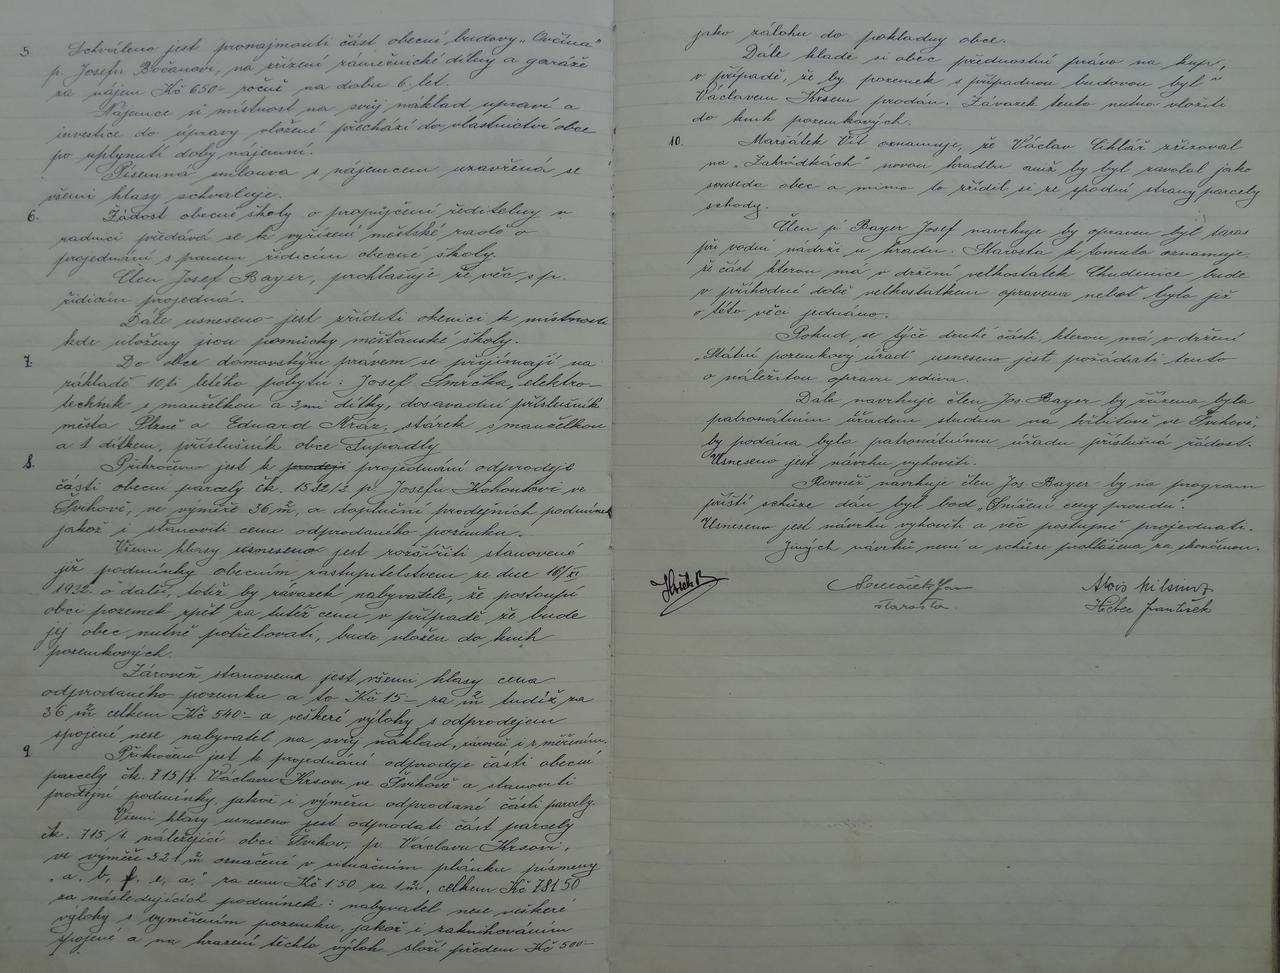 5. Schváleno jest pronajmouti část obecní budovy „Ovčína"
p. Josefu Bočanovi, na zřízení zámečnické dílny a garáže
za nájem Kč 650·- ročně na dobu 6. let.
Nájemce si místnost na svůj náklad upraví a
investice do úpravy vložené přechází do vlastnictví obce
po uplynutí doby nájemní.
Písemná smlouva s nájemcem uzavřená se
všemi hlasy schvaluje.
6. Žádost obecné školy o propůjčení ředitelny v
radnici předává se k vyřízení městské radě o
projednání s panem řídícím obecné školy.
Člen Josef Bayer, prohlašuje že věc s p.
řídícím projedná.
Dále usneseno jest zříditi okenici k místnosti
kde uloženy jsou pomůcky měšťanské školy.
7. Do obce domovským právem se přijímají na
základě 10,ti letého pobytu: Josef Smrčka, elektro-
technik s manželkou a 3,mi dítky, dosavadní příslušník
města Plzně a Eduard Kráz, stárek s manželkou
a 1 dítkem, příslušník obce Lupadly
8. Přikročeno jest k prodeji projednání odprodeje
části obecní parcely čk. 1532/3 p. Josefu Kohoutovi ve
Švihově, ve výměře 36 m², a doplnění prodejních podmínek
jakož i stanoviti cenu odprodaného pozemku.
Všemi hlasy usneseno jest rozšířiti stanovené
již podmínky obecním zastupitelstvem ze dne 16/XI
1932. o další, totiž by závazek nabyvatele, že postoupí
obci pozemek zpět za tutéž cenu v případě že bude
jej obec nutně potřebovati, bude vložen do knih
pozemkových.
Zároveň stanovena jest všemi hlasy cena
odprodaného pozemku a to Kč 15·- za m² tudíž, za
36 m² celkem Kč 540·- a veškeré výlohy s odprodejem
spojené nese nabyvatel na svůj náklad, zároveň i s měřením.
9. Přikročeno jest k projednání odprodeje části obecní
parcely čk. 715/1. Václavu Krsovi ve Švihově a stanoviti
prodejní podmínky, jakož i výměru odprodané části parcely.
Všemi hlasy usneseno jest odprodati část parcely
čk. 715/1 náležející obci Švihov, p. Václavu Krsovi,
ve výměře 521 m² označené v situačním plánku písmeny
„a. b, f. e, a," za cenu Kč 1·50 za 1 m², celkem Kč 781·50
za následujících podmínek: nabyvatel nese veškeré
výlohy s vyměřením pozemku, jakož i zaknihováním
spojené a na hrazení těchto výloh složí předem Kč 500·-
jako zálohu do pokladny obce.
Dále klade si obec přednostní právo na kupi,
v případě, že by pozemek s případnou budovou byl
Václavem Krsem prodán. Závazek tento nutno vložiti
do knih pozemkových.
10. Maršálek Vít oznamuje, že Václav Cihlář zřizoval
na „Zahrádkách" novou hradbu aniž by byl zavolal jako
souseda obec a mimo to zřídil si ze spodní strany parcely
schody.
Člen p. Bayer Josef navrhuje by opraven byl taras
při vodní nádrži u hradu. Starosta k tomuto oznamuje,
že část kterou má v držení velkostatek Chudenice bude
v příhodné době velkostatkem opravena neboť bylo již
o této věci jednáno.
Pokud se týče druhé části, kterou má v držení
„Státní pozemkový úřad" usneseno jest požádati tento
o náležitou opravu zdiva.
Dále navrhuje člen Jos. Bayer by zřízena byla
patronátním úřadem studna na hřbitově ve Švihově,
by podána byla patronátnímu úřadu příslušná žádost.
Usneseno jest návrhu vyhověti.
Rovněž navrhuje člen Jos Bayer by na program
příští schůze dán byl bod „Snížení ceny proudu".
Usneseno jest návrhu vyhověti a věc postupně projednati.
Jiných návrhů není a schůze prohlášena za skončenou.
starosta.
Alois
František